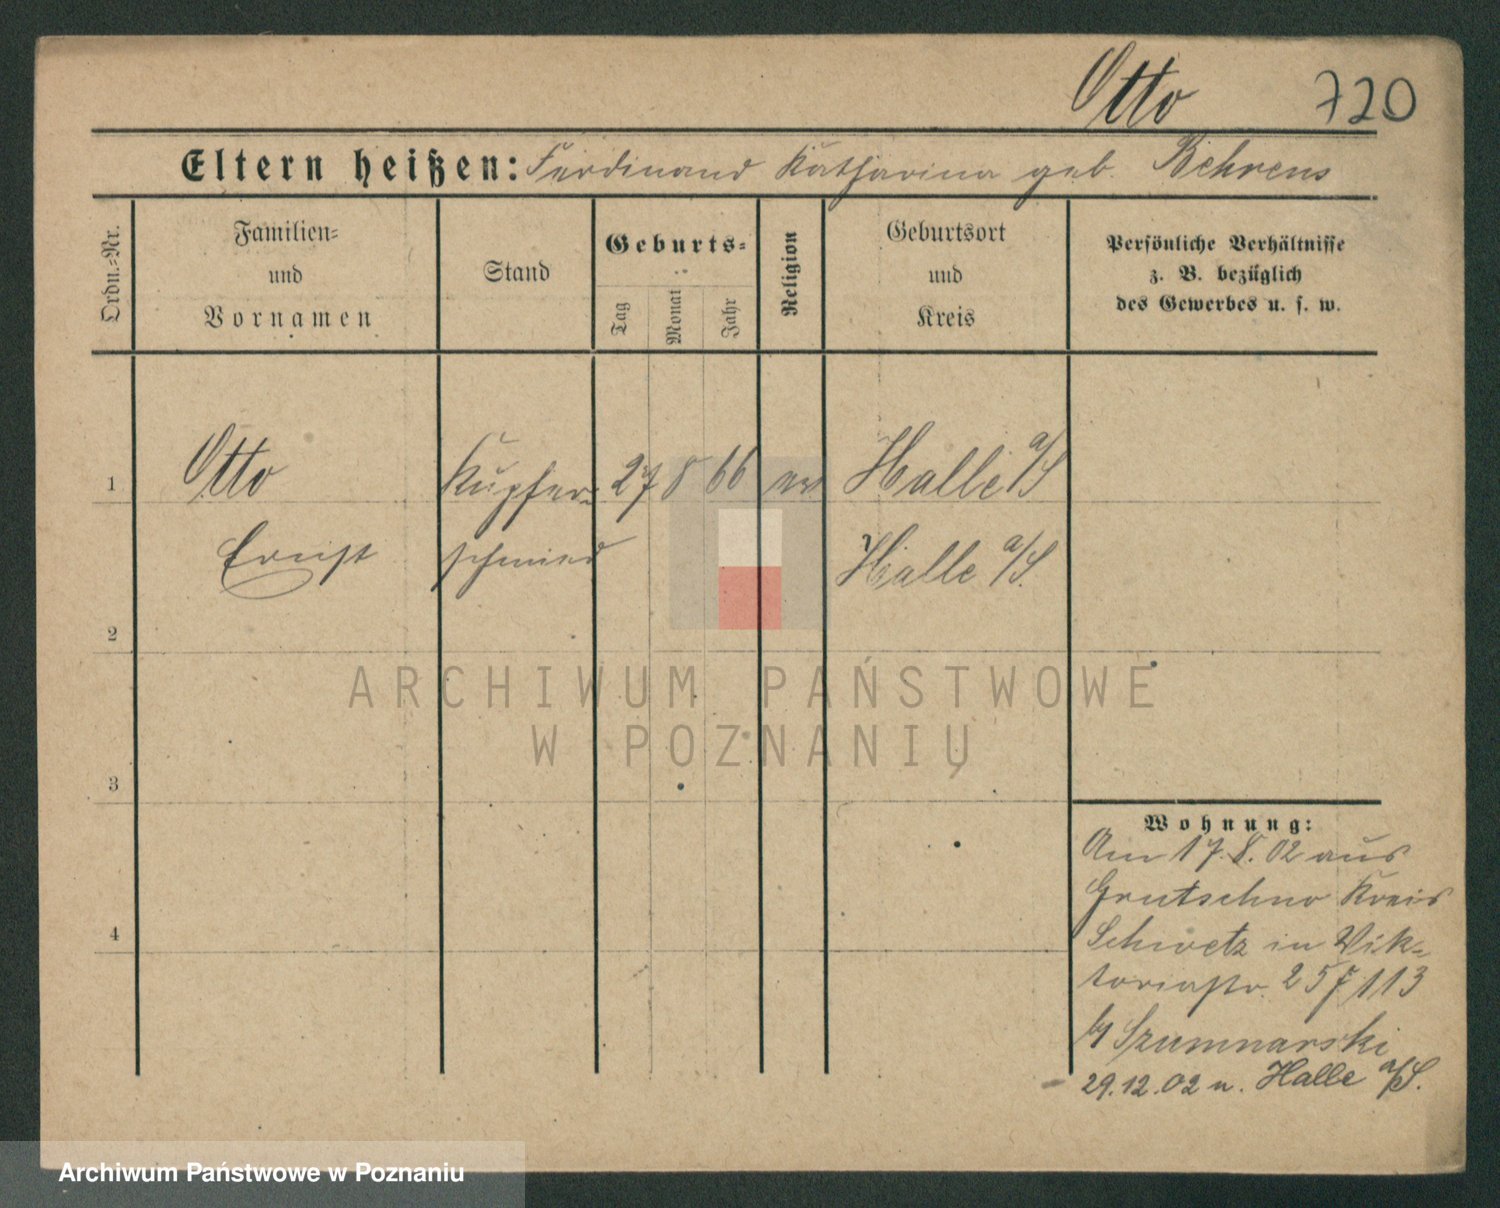 Otto 720
Eltern heißen: Ferdinand Katharina geb. Behrens
Ordn.-Nr.
Familien-
und
Vornamen
Stand
Geburts-
Tag
Monat
Jahr
Religion
Geburtsort
und
Kreis
Persönliche Verhältnisse
z. B. bezüglich
des Gewerbes u. s. w.
1 Otto Kupfer- 27 8 66 ev Halle a/S
Ernst schmied Halle a/S.
2
ARCHIWUM PAŃSTWOWE
W POZNANIU
3
Wohnung:
Am 17.8.02 aus
Grutschno Kreis
Schwetz in Vik-
toriastr. 25 113
Szumnarski
4
29.12.02 n. Halle a/S.
Archiwum Państwowe w Poznaniu